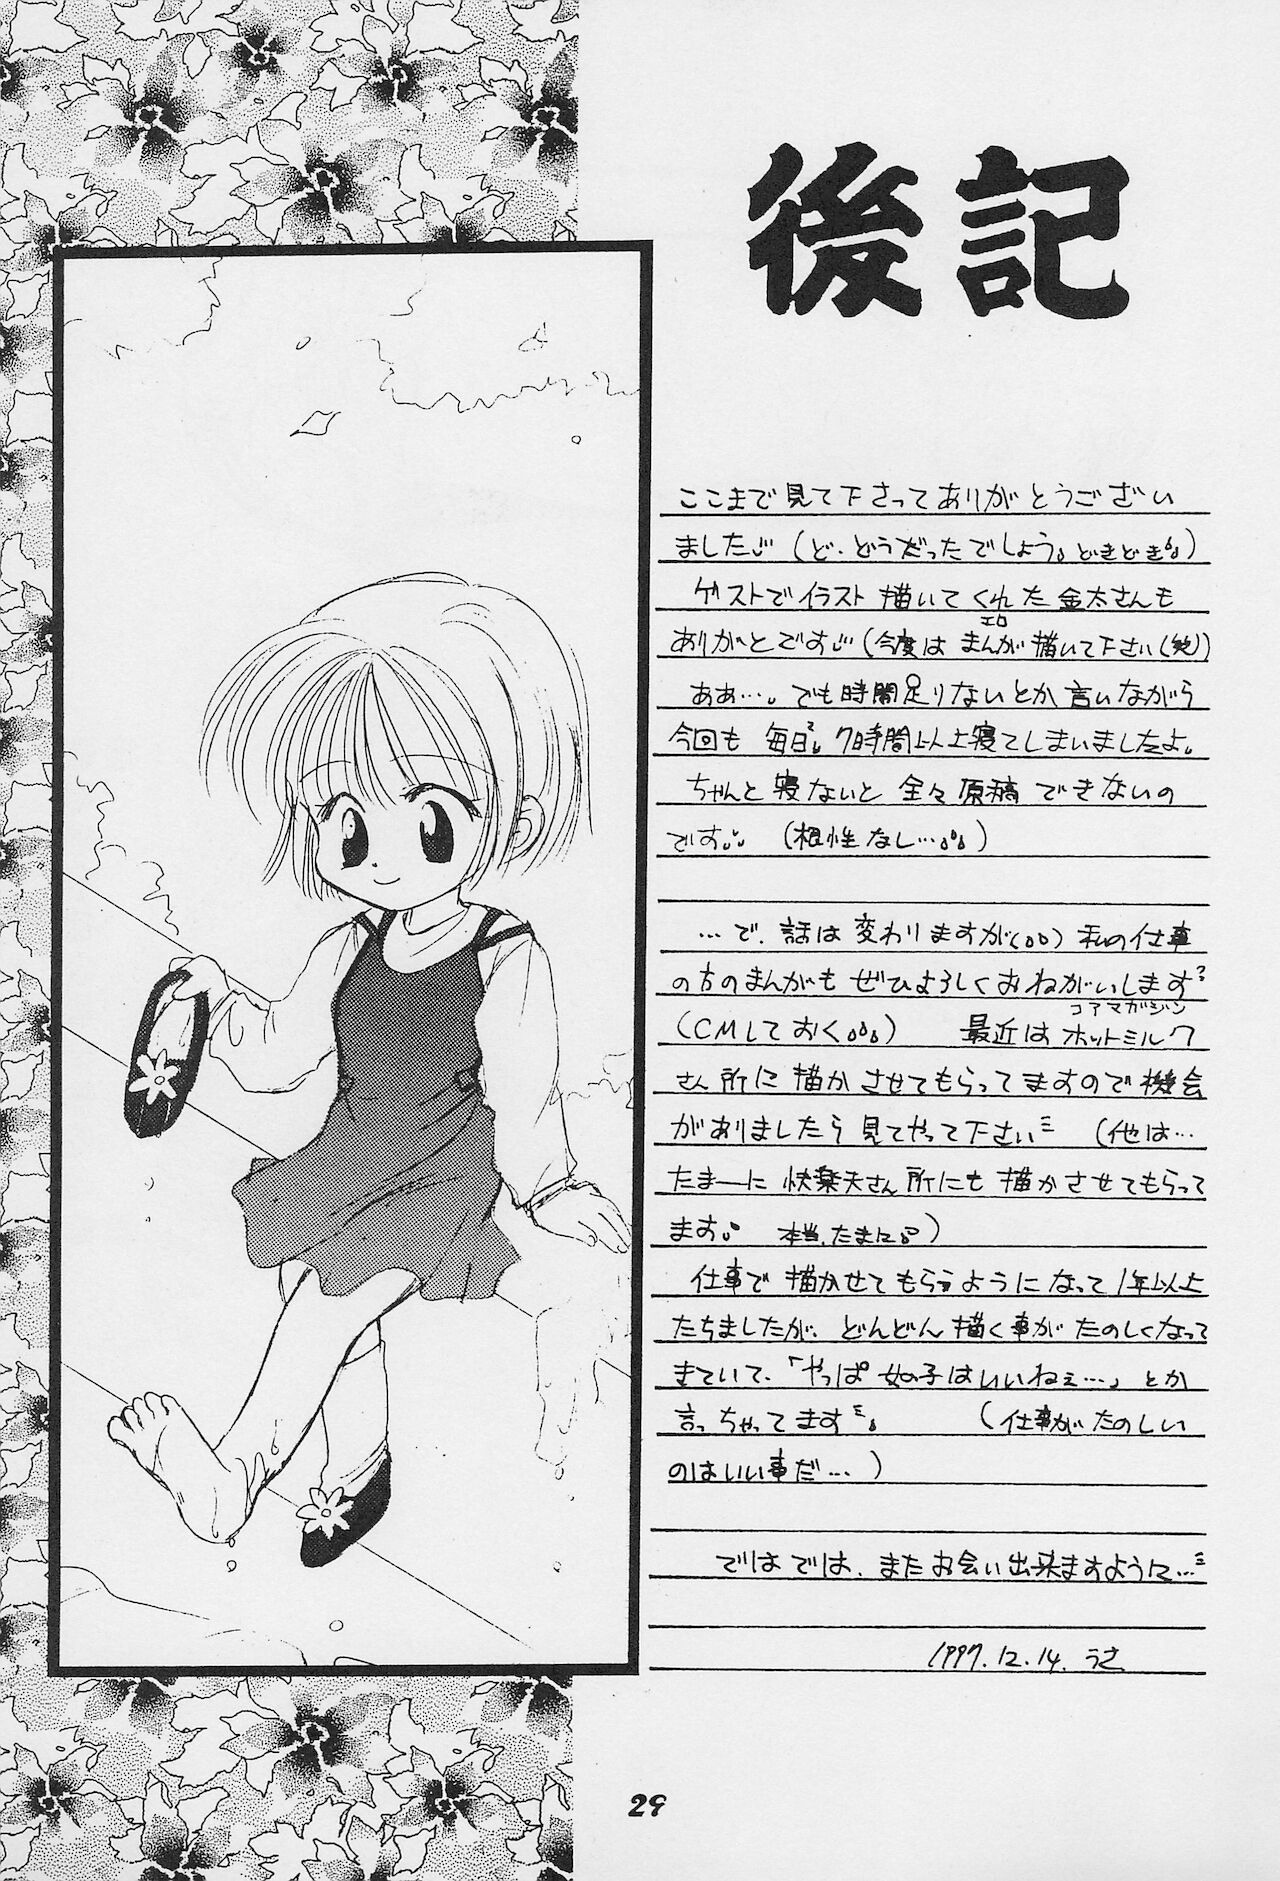 後記
ここまで見て下さってありがとうござい
ました（ど、どうだったでしょう。どきどき）
ゲストでイラスト描いてくれた金太さんも
ありがとです（今度はまんが描いて下さい（笑））
エロ
ああ…。でも時間足りないとか言いながら
今回も毎日。7時間以上寝てしまいましたよ。
ちゃんと寝ないと全々原稿できないの
です（根性なし…）
…で、話は変わりますが（。。）私の仕事
の方のまんがもぜひよろしくおねがいします
（CMしておく。。。）　最近はホットミルク
コアマガジン
さん所に描かさせてもらってますので機会
がありましたら見てやって下さい（他は…
たまーに快楽天さん所にも描かさせてもらって
ます。本当、たまに。）
仕事で描かせてもらうようになって1年以上
たちましたが、どんどん描く事がたのしくなって
きていて、「やっぱ女の子はいいねぇ…」とか
言っちゃってます。（仕事がたのしい
のはいい事だ…）
ではでは、またお会い出来ますように…
1997.12.14.うさ
29